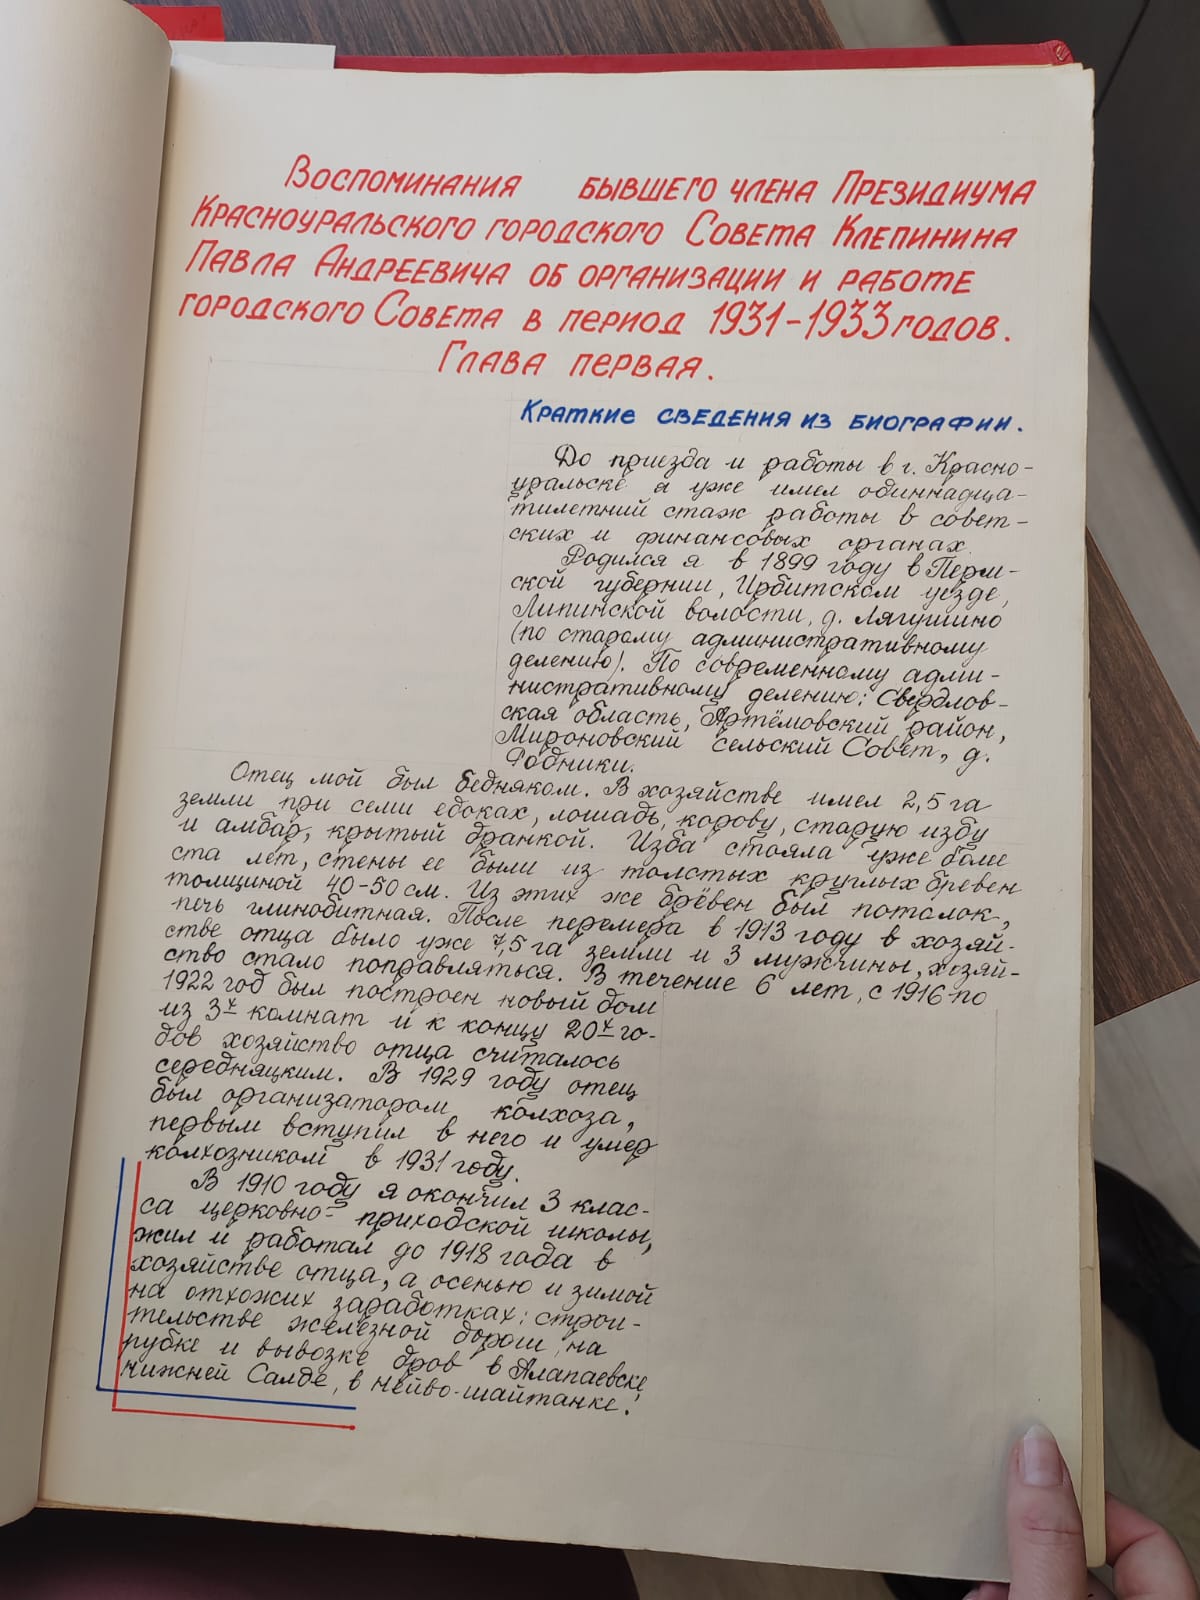 Воспоминания бывшего члена Президиума
Красноуральского городского Совета Клепинина
Павла Андреевича об организации и работе
городского Совета в период 1931-1933 годов.
Глава первая.
Краткие сведения из биографии.
До приезда и работы в г. Красно-
уральске я уже имел одиннадца-
тилетний стаж работы в совет-
ских и финансовых органах.
Родился я в 1899 году в Перм-
ской губернии, Ирбитском уезде,
Липинской волости, д. Лягушино
(по старому административному
делению). По современному адми-
нистративному делению: Свердлов-
ская область, Артёмовский район,
Мироновский сельский Совет, д.
Родники.
Отец мой был бедняком. В хозяйстве имел 2,5 га
земли при семи едоках, лошадь, корову, старую избу
и амбар, крытый дранкой. Изба стояла уже более
ста лет, стены ее были из толстых круглых бревен
толщиной 40-50 см. Из этих же брёвен был потолок,
печь глинобитная. После перемера в 1913 году в хозяй-
стве отца было уже 7,5 га земли и 3 мужчины, хозяй-
ство стало поправляться. В течение 6 лет, с 1916 по
1922 год был построен новый дом
из 3х комнат и к концу 20х го-
дов хозяйство отца считалось
середняцким. В 1929 году отец
был организатором колхоза,
первым вступил в него и умер
колхозником в 1931 году.
В 1910 году я окончил 3 клас-
са церковно-приходской школы,
жил и работал до 1918 года в
хозяйстве отца, а осенью и зимой
на отхожих заработках: строи-
тельстве железной дороги, на
рубке и вывозке дров в Алапаевске,
нижней Салде, в нейво-шайтанке.